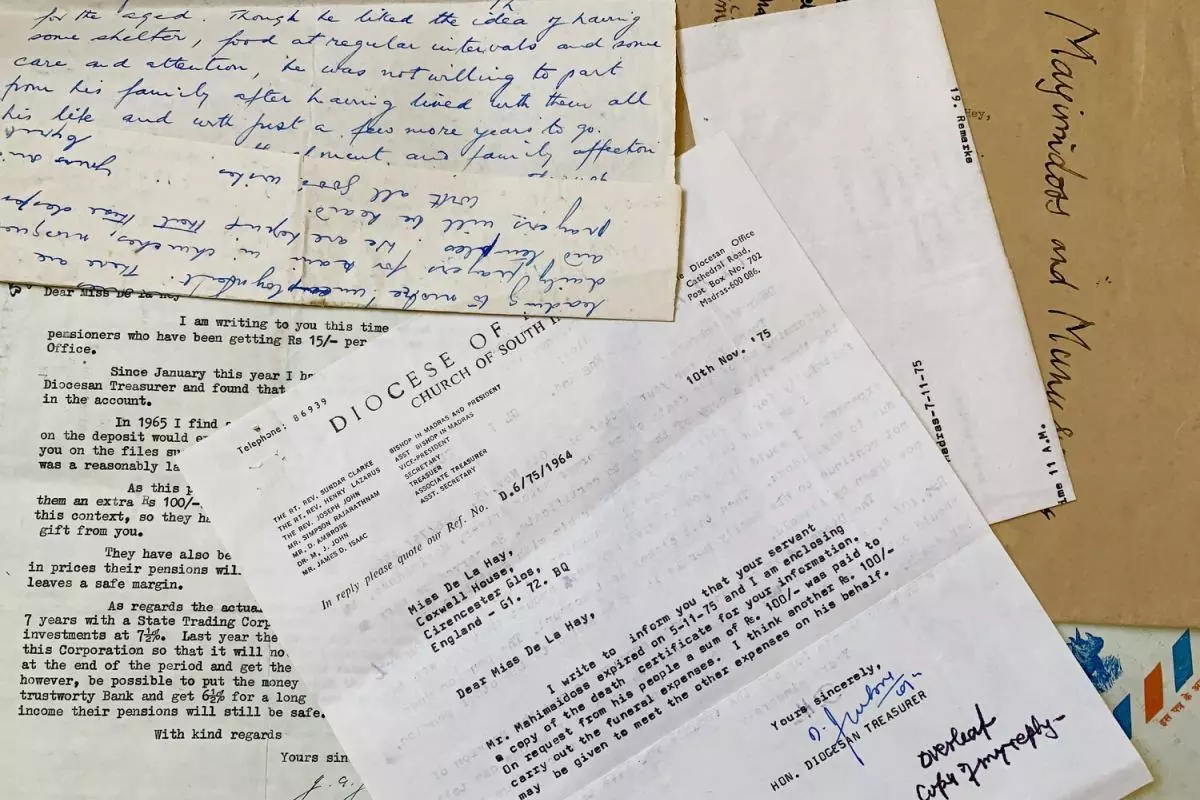 for the aged. Though he liked the idea of having
some shelter, food at regular intervals and some
care and attention, he was not willing to part
from his family after having lived with them all
his life and with just a few more years to go.
and family affection
leading to
daily prayers for rain in churches, mosques
and temples. We are hopeful that these
prayers will be heard.
With all good wishes.
Dear Miss De la Hey
I am writing to you this time
pensioners who have been getting Rs 15/- per
Office.
Since January this year I
Diocesan Treasurer and found that
in the account.
In 1965 I find
on the deposit would
you on the files
was a reasonably
As this
them an extra Rs 100/-
this context, so they
gift from you.
They have also
in prices their pensions
leaves a safe margin.
As regards the
7 years with a State Trading
investments at 7½%. Last year the
this Corporation so that it will
at the end of the period and get the
however, be possible to put the money
trustworty Bank and get 6½% for a long
income their pensions will still be safe.
With kind regards
Yours
Telephone: 86939
DIOCESE OF
CHURCH OF SOUTH
Diocesan Office
Cathedral Road,
Post Box No. 702
Madras-600 086.
10th Nov. '75
THE RT. REV. SUNDAR CLARKE BISHOP IN MADRAS AND PRESIDENT
THE RT. REV. HENRY LAZARUS ASST BISHOP IN MADRAS
THE REV. JOSEPH JOHN VICE-PRESIDENT
MR. SIMPSON RAJARATHNAM SECRETARY
MR. D. AMBROSE TREASUER
DR. M. J. JOHN ASSOCIATE TREASURER
MR. JAMES D. ISAAC ASST. SECRETARY
In reply please quote our Ref. No. D.6/75/1964
Miss De La Hay,
Coxwell House,
Cirencester Glos,
England - G1. 72. BQ
Dear Miss De La Hay,
I write to inform you that your servant
Mr. Mahimaidoss expired on 5-11-75 and I am enclosing
a copy of the death certificate for your information.
On request from his people a sum of Rs. 100/- was paid to
carry out the funeral expenses. I think another Rs. 100/-
may be given to meet the other expenses on his behalf.
Yours sincerely,
HON. DIOCESAN TREASURER
overleaf
Copy of my reply-
19. Remarks
Hey,
Madras-7-11-75
11 A.M.
and